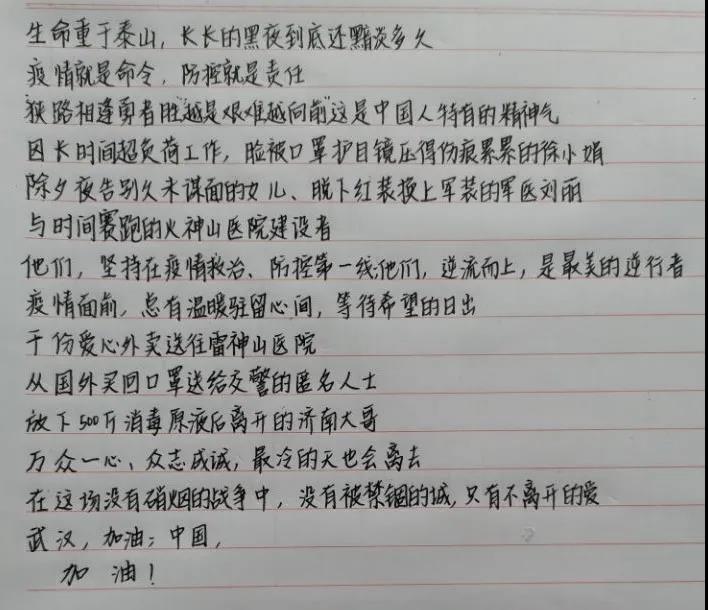 生命重于泰山，长长的黑夜到底还黯淡多久
疫情就是命令，防控就是责任
"狭路相逢勇者胜"越是艰难越向前"这是中国人特有的精神气
因长时间超负荷工作，脸被口罩护目镜压得伤痕累累的徐小娟
除夕夜告别久未谋面的女儿、脱下红装换上军装的军医刘丽
与时间赛跑的火神山医院建设者
他们，坚持在疫情救治、防控第一线;他们，逆流而上，是最美的逆行者
疫情面前，总有温暖驻留心间，等待希望的日出
千份爱心外卖送往雷神山医院
从国外买回口罩送给交警的匿名人士
放下500斤消毒原液后离开的济南大哥
万众一心、众志成诚，最冷的天也会离去
在这场没有硝烟的战争中，没有被禁锢的城,只有不离开的爱
武汉，加油；中国，
加油！